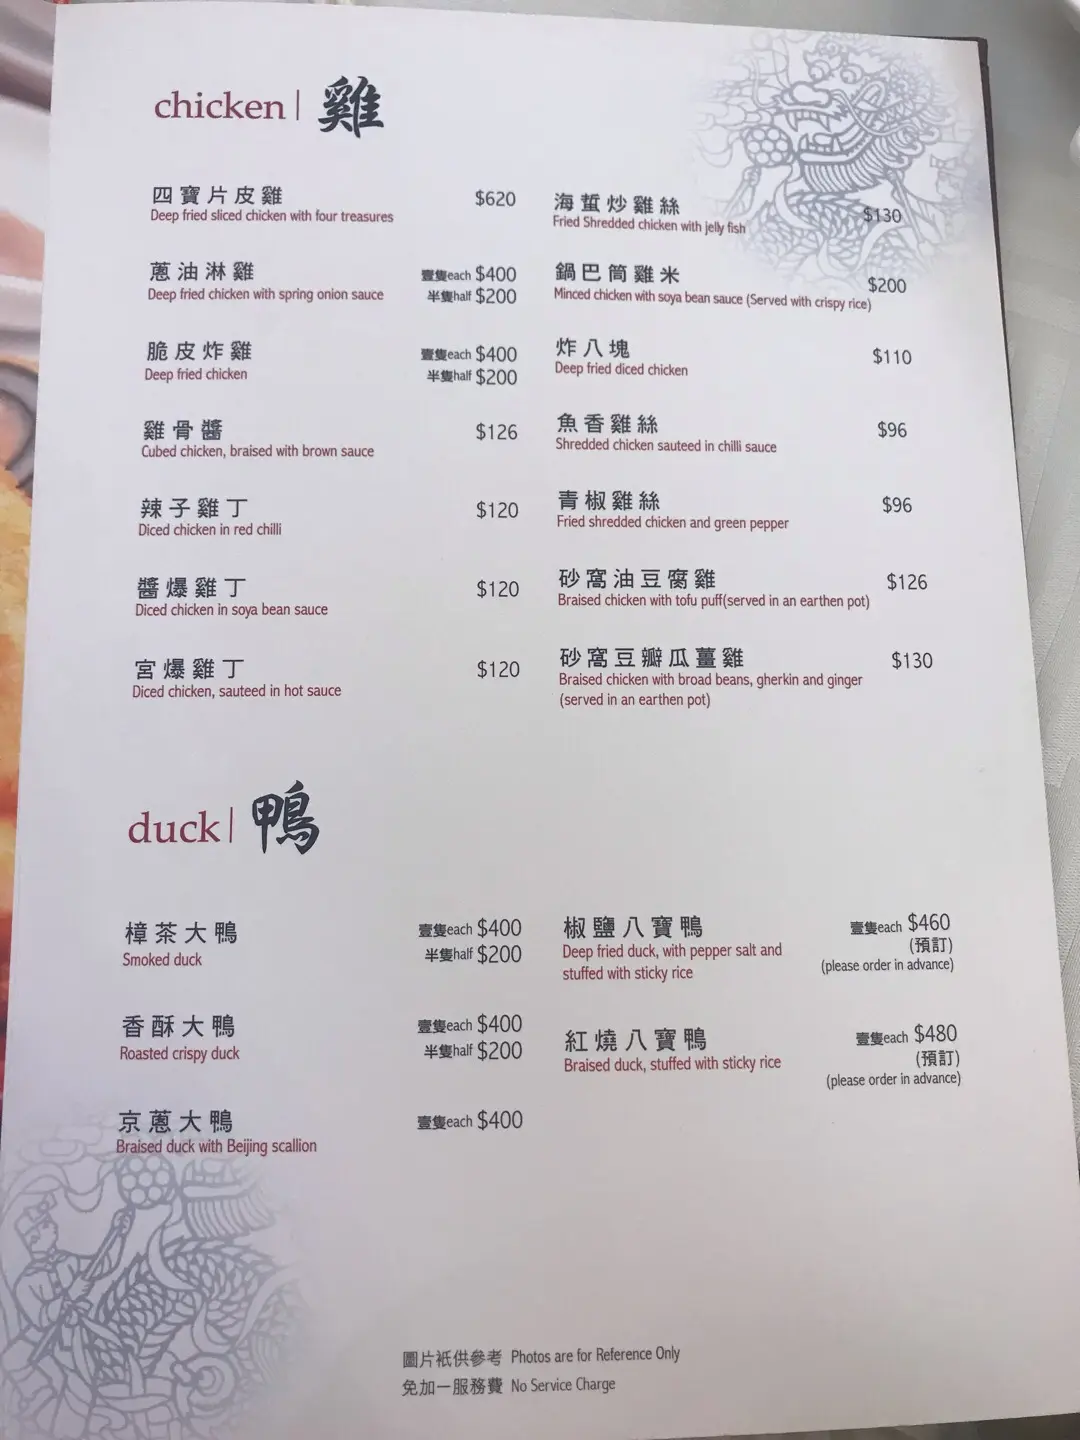 chicken | 雞
四寶片皮雞 $620
Deep fried sliced chicken with four treasures
蔥油淋雞 壹隻each $400
Deep fried chicken with spring onion sauce 半隻half $200
脆皮炸雞 壹隻each $400
Deep fried chicken 半隻half $200
雞骨醬 $126
Cubed chicken, braised with brown sauce
辣子雞丁 $120
Diced chicken in red chilli
醬爆雞丁 $120
Diced chicken in soya bean sauce
宮爆雞丁 $120
Diced chicken, sauteed in hot sauce
海蜇炒雞絲 $130
Fried Shredded chicken with jelly fish
鍋巴筒雞米 $200
Minced chicken with soya bean sauce (Served with crispy rice)
炸八塊 $110
Deep fried diced chicken
魚香雞絲 $96
Shredded chicken sauteed in chilli sauce
青椒雞絲 $96
Fried shredded chicken and green pepper
砂窩油豆腐雞 $126
Braised chicken with tofu puff(served in an earthen pot)
砂窩豆瓣瓜薑雞 $130
Braised chicken with broad beans, gherkin and ginger
(served in an earthen pot)
duck | 鴨
樟茶大鴨 壹隻each $400
Smoked duck 半隻half $200
香酥大鴨 壹隻each $400
Roasted crispy duck 半隻half $200
京蔥大鴨 壹隻each $400
Braised duck with Beijing scallion
椒鹽八寶鴨 壹隻each $460
Deep fried duck, with pepper salt and (預訂)
stuffed with sticky rice (please order in advance)
紅燒八寶鴨 壹隻each $480
Braised duck, stuffed with sticky rice (預訂)
(please order in advance)
圖片衹供參考 Photos are for Reference Only
免加一服務費 No Service Charge